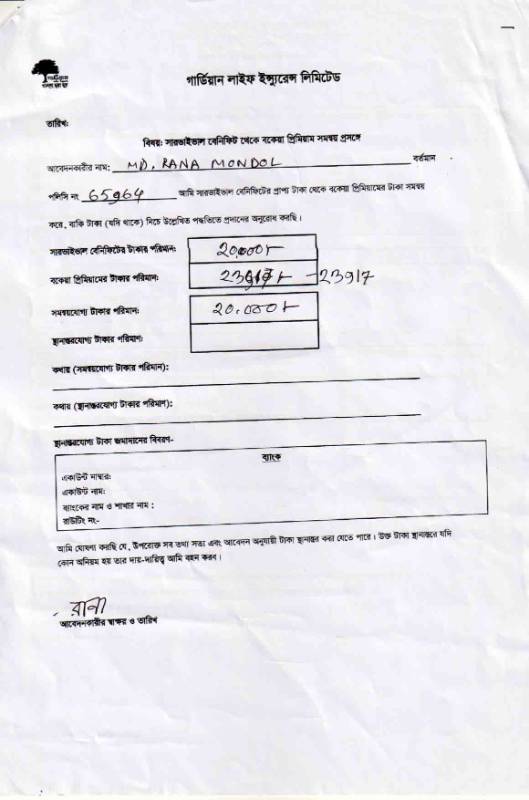 গার্ডিয়ান লাইফ ইন্স্যুরেন্স লিমিটেড
তারিখ:
বিষয়: সারভাইভাল বেনিফিট থেকে বকেয়া প্রিমিয়াম সমন্বয় প্রসঙ্গে
আবেদনকারীর নাম: MD. RANA MONDOL বর্তমান
পলিসি নং 65964 আমি সারভাইভাল বেনিফিটের প্রাপ্য টাকা থেকে বকেয়া প্রিমিয়ামের টাকা সমন্বয়
করে, বাকি টাকা (যদি থাকে) নিচে উল্লেখিত পদ্ধতিতে প্রদানের অনুরোধ করছি।
সারভাইভাল বেনিফিটের টাকার পরিমান: 20,000/-
বকেয়া প্রিমিয়ামের টাকার পরিমান: 23917/- -23917
সমন্বয়যোগ্য টাকার পরিমান: 20,000/-
স্থানান্তরযোগ্য টাকার পরিমাণ:
কথায় (সমন্বয়যোগ্য টাকার পরিমান):
কথায় (স্থানান্তরযোগ্য টাকার পরিমাণ):
স্থানান্তরযোগ্য টাকা জমাদানের বিবরণ-
ব্যাংক
একাউন্ট নাম্বার:
একাউন্ট নাম:
ব্যাংকের নাম ও শাখার নাম :
রাউটিং নং-
আমি ঘোষনা করছি যে, উপরোক্ত সব তথ্য সত্য এবং আবেদন অনুযায়ী টাকা স্থানান্তর করা যেতে পারে। উক্ত টাকা স্থানান্তরে যদি
কোন অনিয়ম হয় তার দায়-দায়িত্ব আমি বহন করব।
রানা
আবেদনকারীর স্বাক্ষর ও তারিখ